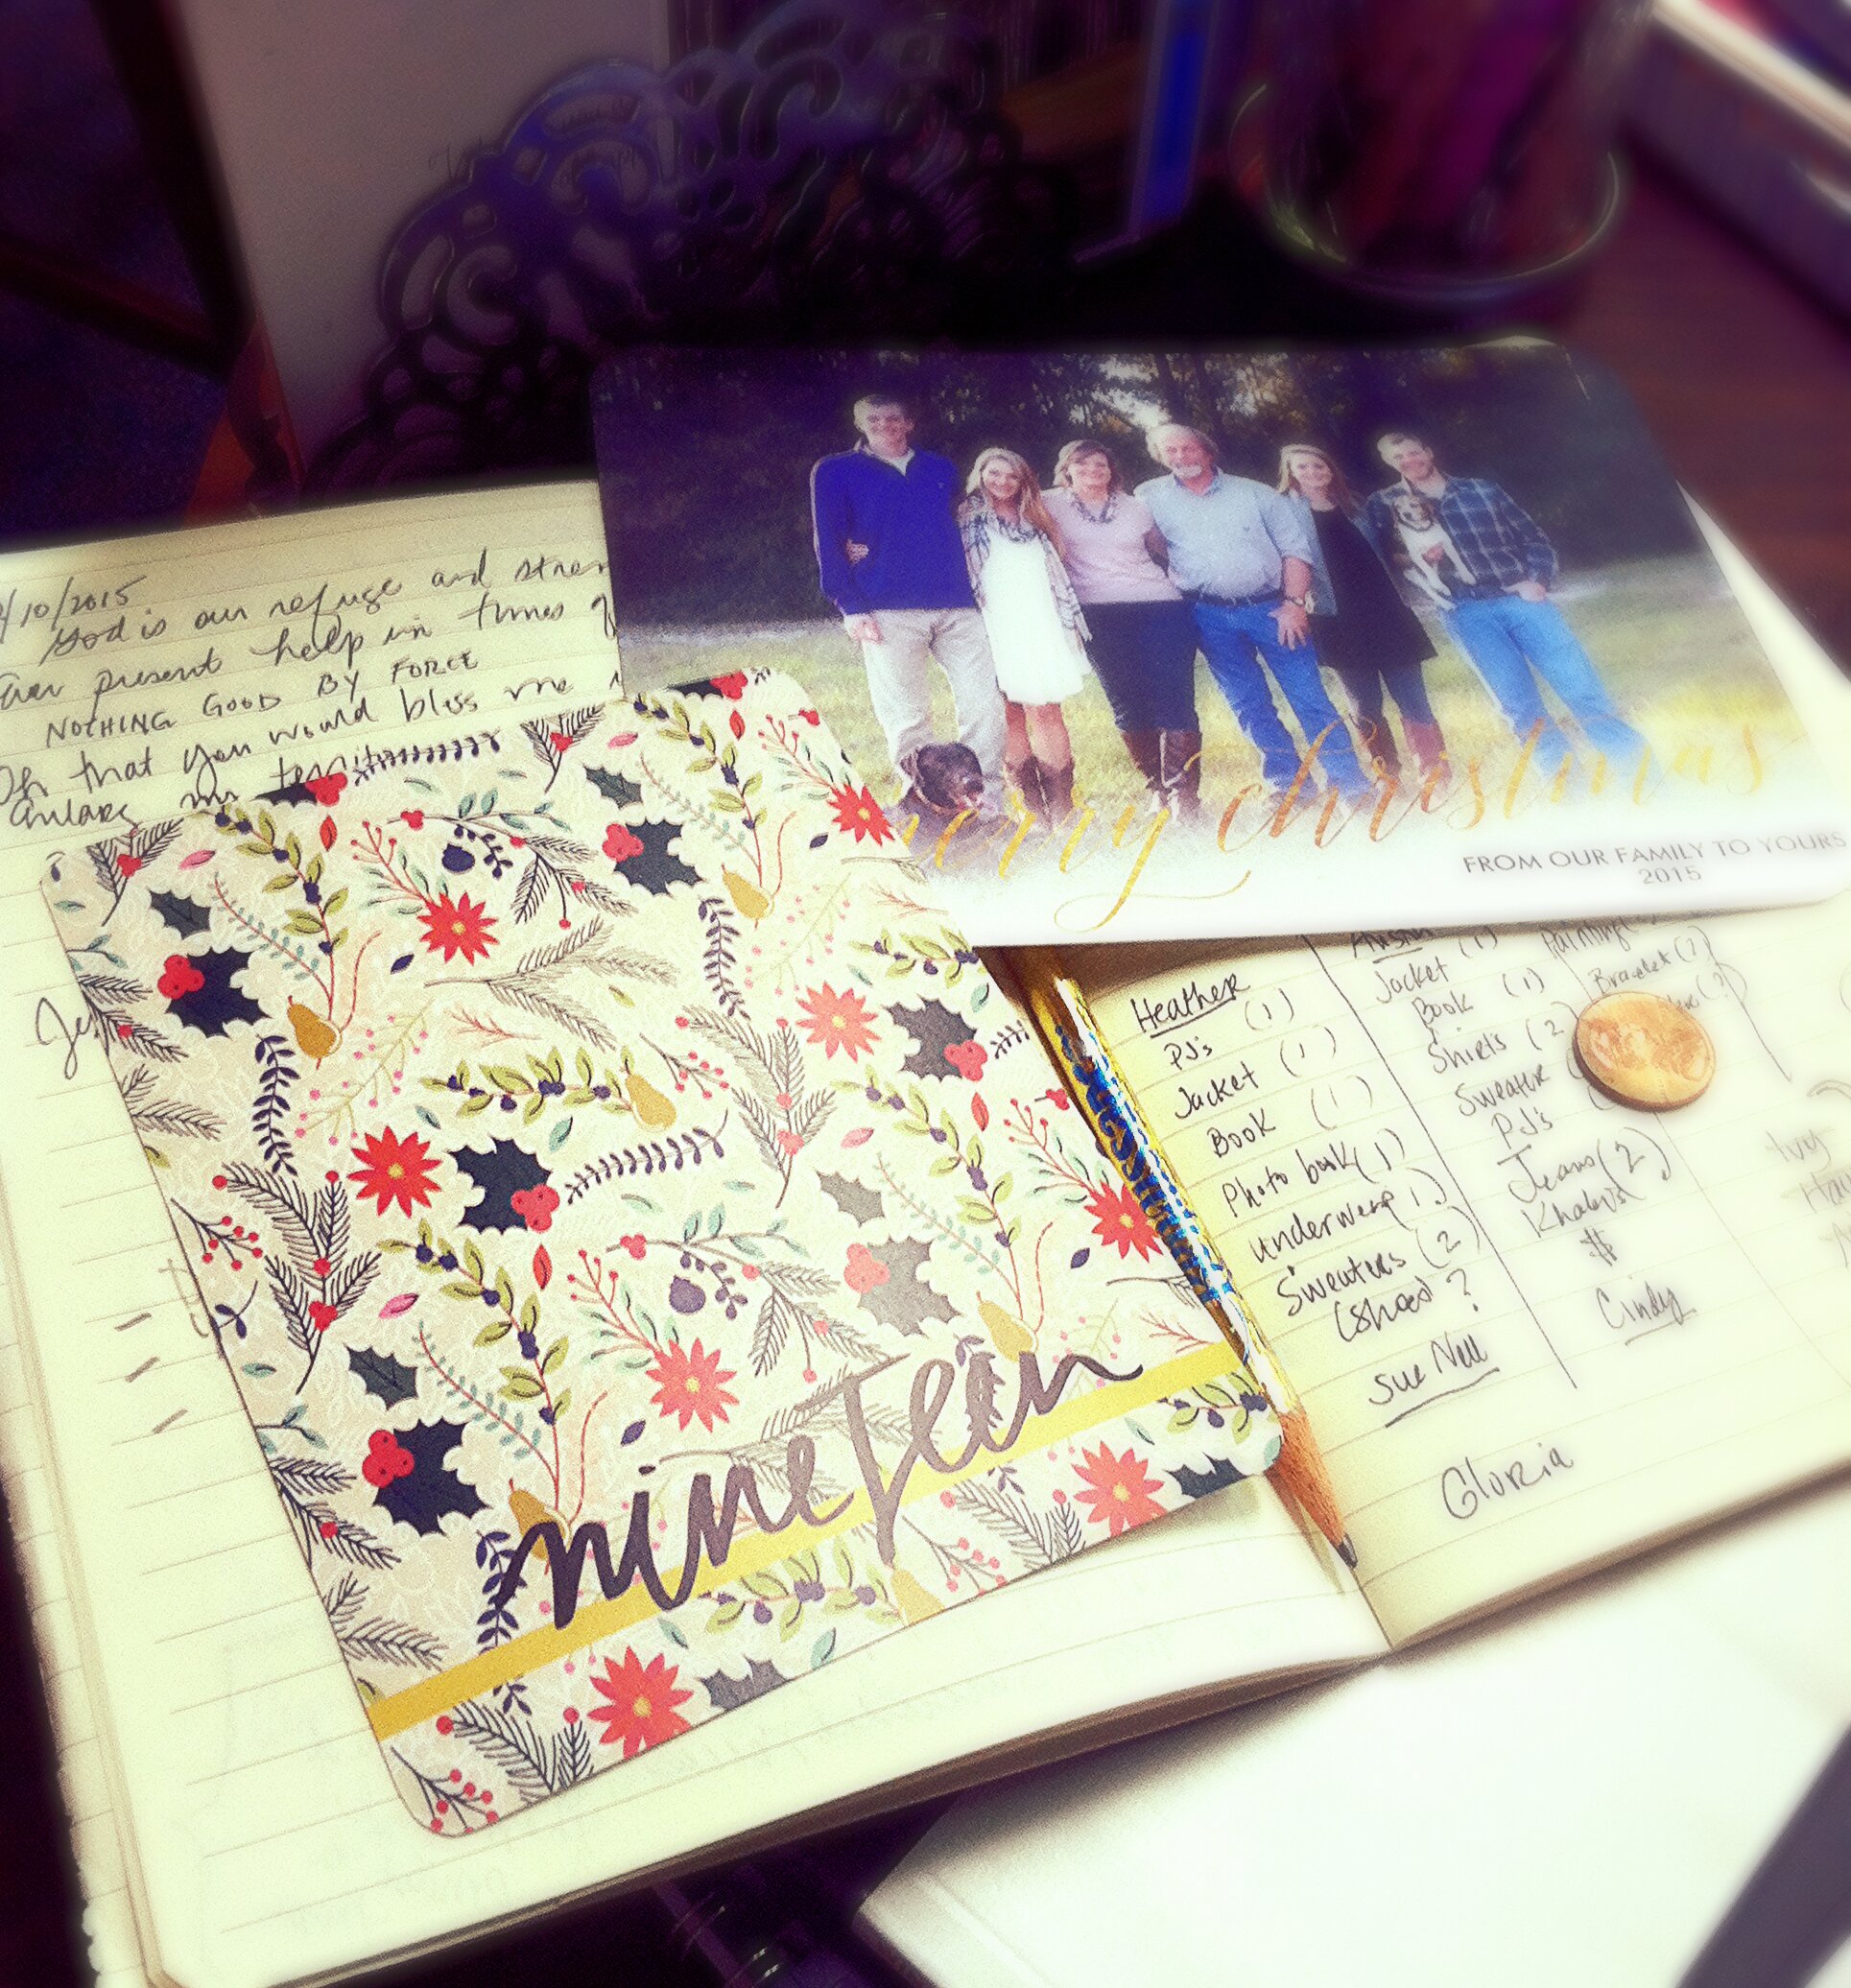 /10/2015
God is our refuge and
Ever present help in times
NOTHING GOOD BY FORCE
Oh that you would bless me
Enlarge my
merry christmas
FROM OUR FAMILY TO YOURS
2015
nineteen
Heather
PJ's (1)
Jacket (1)
Book (1)
Photo book (1)
underwear 1)
Sweaters (2)
(shoes) ?
Sue Nell
Gloria
Jacket (1)
Book (1)
Shirts (2)
Sweater
PJ's
Jeans (2)
Khakis
$
Cindy
Painting
Bracelet (1)
Ivy